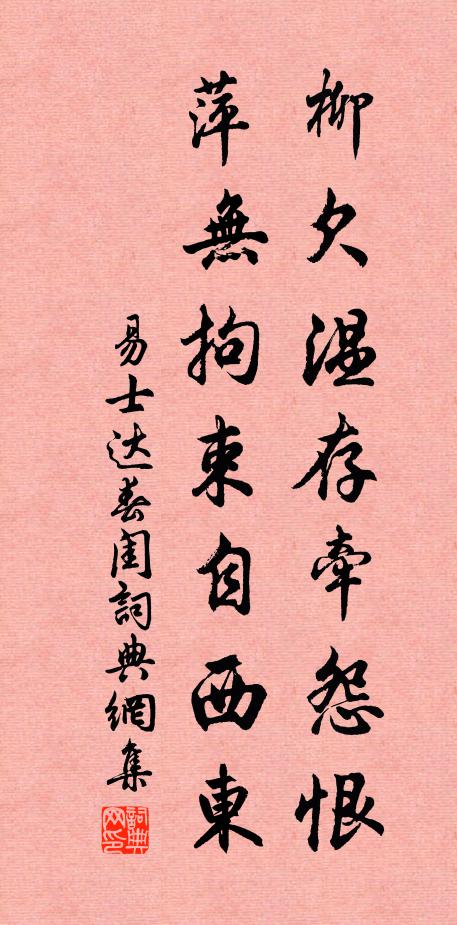 柳欠温存牵怨恨
萍無拘束自西東
易士达春閨詞典網集
詞典网印